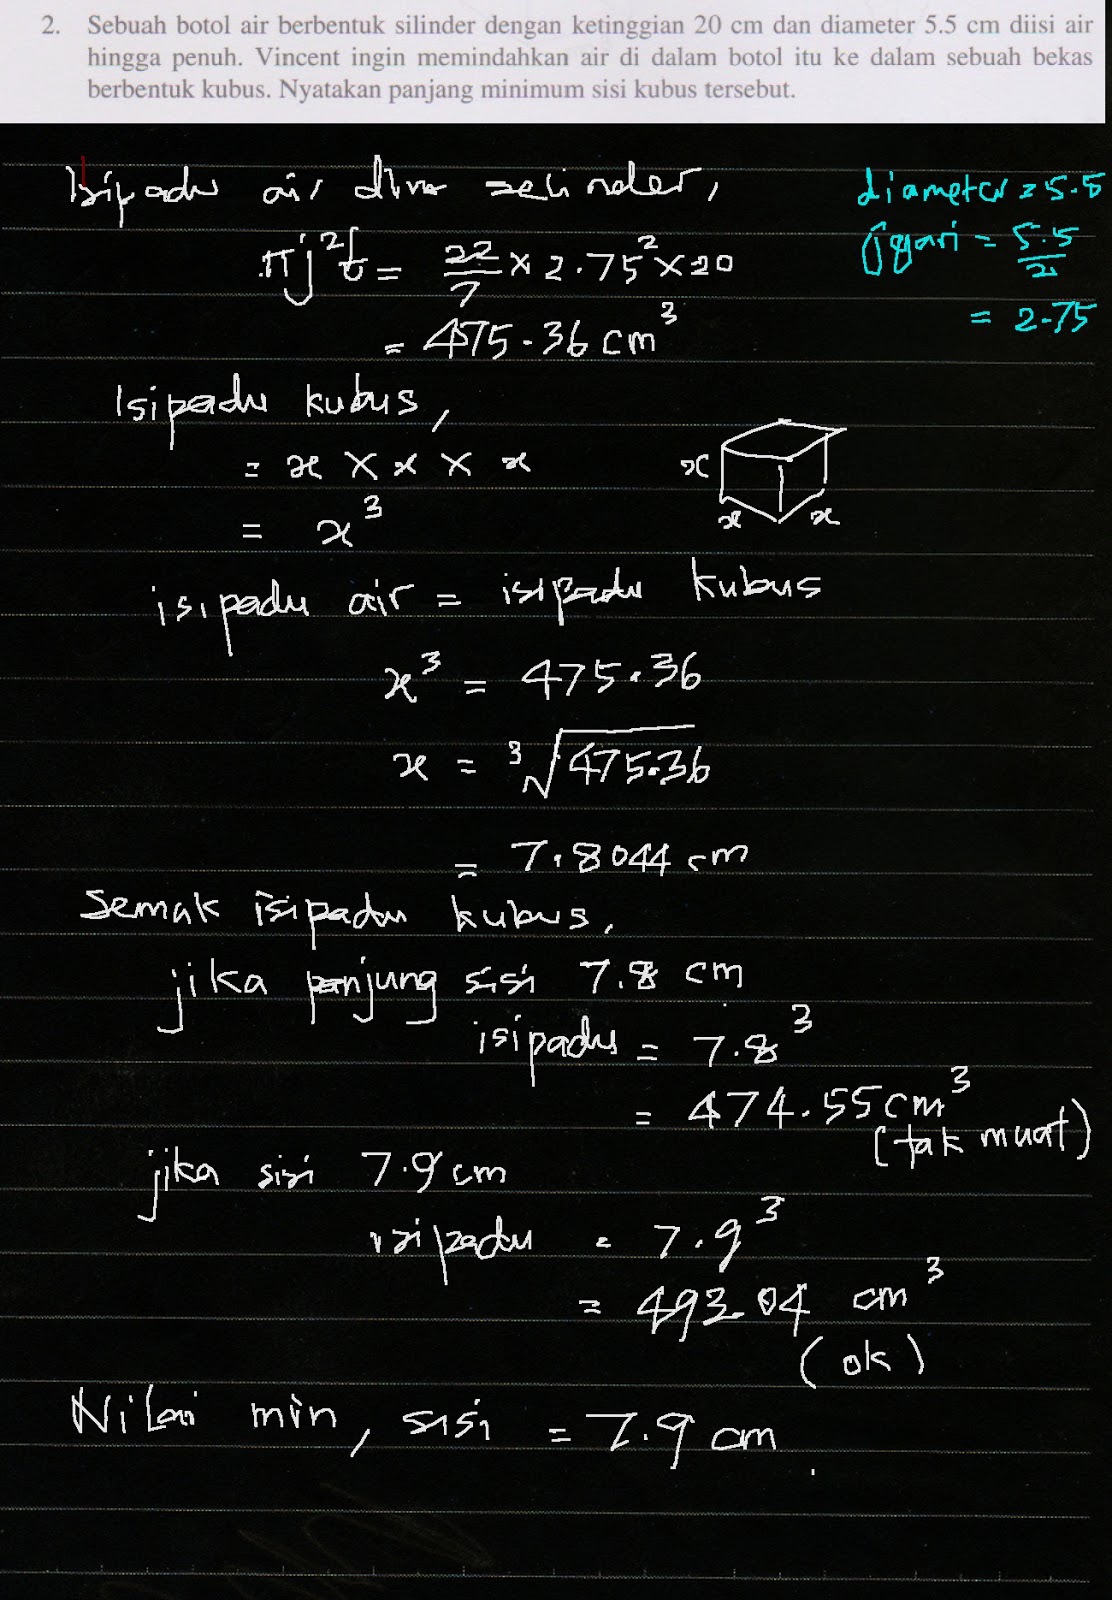 2. Sebuah botol air berbentuk silinder dengan ketinggian 20 cm dan diameter 5.5 cm diisi air
hingga penuh. Vincent ingin memindahkan air di dalam botol itu ke dalam sebuah bekas
berbentuk kubus. Nyatakan panjang minimum sisi kubus tersebut.
Isipadu air dlm selinder,
diameter = 5.5
jejari = 5.5/2
= 2.75
πj²t = 22/7 × 2.75² × 20
= 475.36 cm³
Isipadu kubus,
= x × x × x
= x³
x
x x
isipadu air = isipadu kubus
x³ = 475.36
x = ³√475.36
= 7.8044 cm
Semak isipadu kubus,
jika panjang sisi 7.8 cm
isipadu = 7.8³
= 474.55 cm³
(tak muat)
jika sisi 7.9 cm
isipadu = 7.9³
= 493.04 cm³
(ok)
Nilai min, sisi = 7.9 cm.